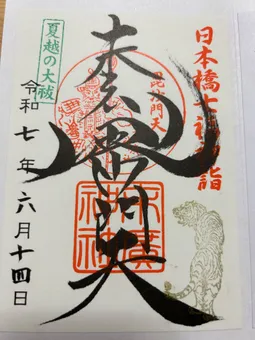 日本橋七福神詣
毘沙門天
末廣毘沙門天
末廣
神社
夏越の大祓
令和七年六月十四日